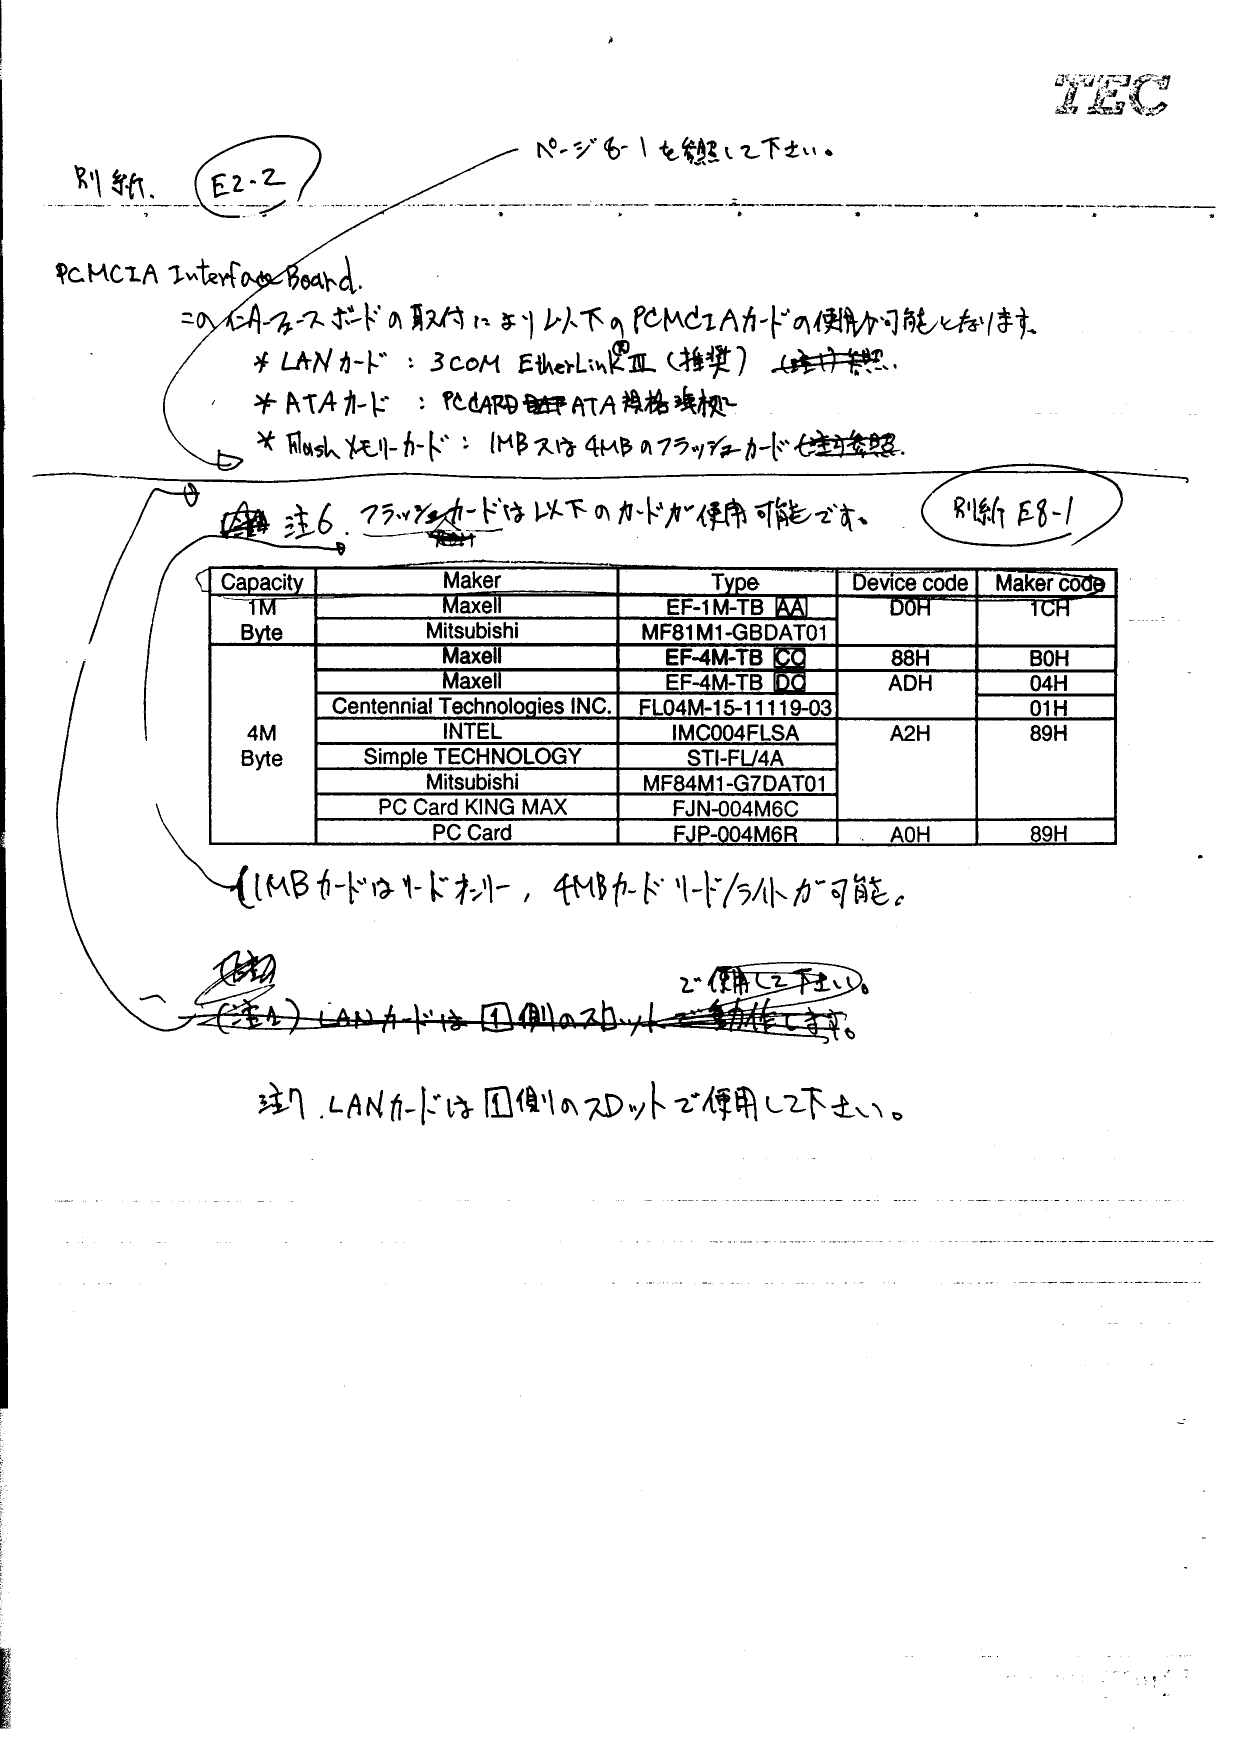 TEC
ページ8-1を参照して下さい。
別紙. E2-2
PCMCIA Interface Board.
このインターフェースボードの取付により以下のPCMCIAカードの使用が可能となります。
* LANカード : 3COM EtherLink® III (推奨) (注1)参照.
* ATAカード : PC CARD ATA規格準拠
* Flashメモリーカード : 1MB又は4MBのフラッシュカード (注1)参照.
注6. フラッシュカードは以下のカードが使用可能です。
別紙 E8-1
Capacity Maker Type Device code Maker code
1M Byte Maxell EF-1M-TB AA D0H 1CH
Mitsubishi MF81M1-GBDAT01
4M Byte Maxell EF-4M-TB CC 88H B0H
Maxell EF-4M-TB DC ADH 04H
Centennial Technologies INC. FL04M-15-11119-03 01H
INTEL IMC004FLSA A2H 89H
Simple TECHNOLOGY STI-FL/4A
Mitsubishi MF84M1-G7DAT01
PC Card KING MAX FJN-004M6C
PC Card FJP-004M6R A0H 89H
(1MBカードはリードオンリー, 4MBカードリード/ライトが可能。
で使用して下さい。
(注2) LANカードは 1 側のスロットで動作します。
注7. LANカードは 1 側のスロットで使用して下さい。